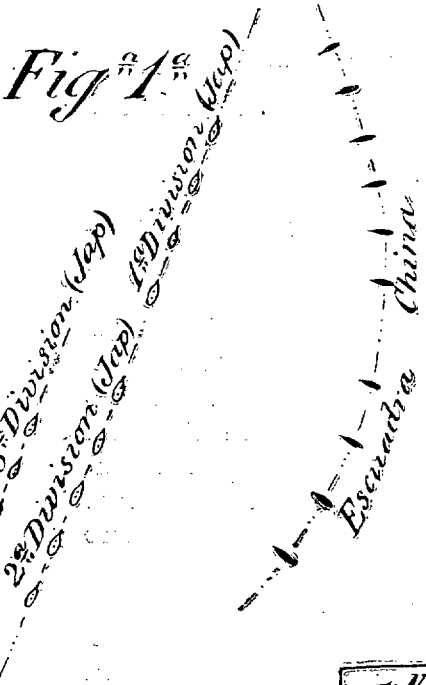 Figª 1ª
1ª Division (Jap)
Division (Jap)
2ª Division (Jap)
Escuadra China